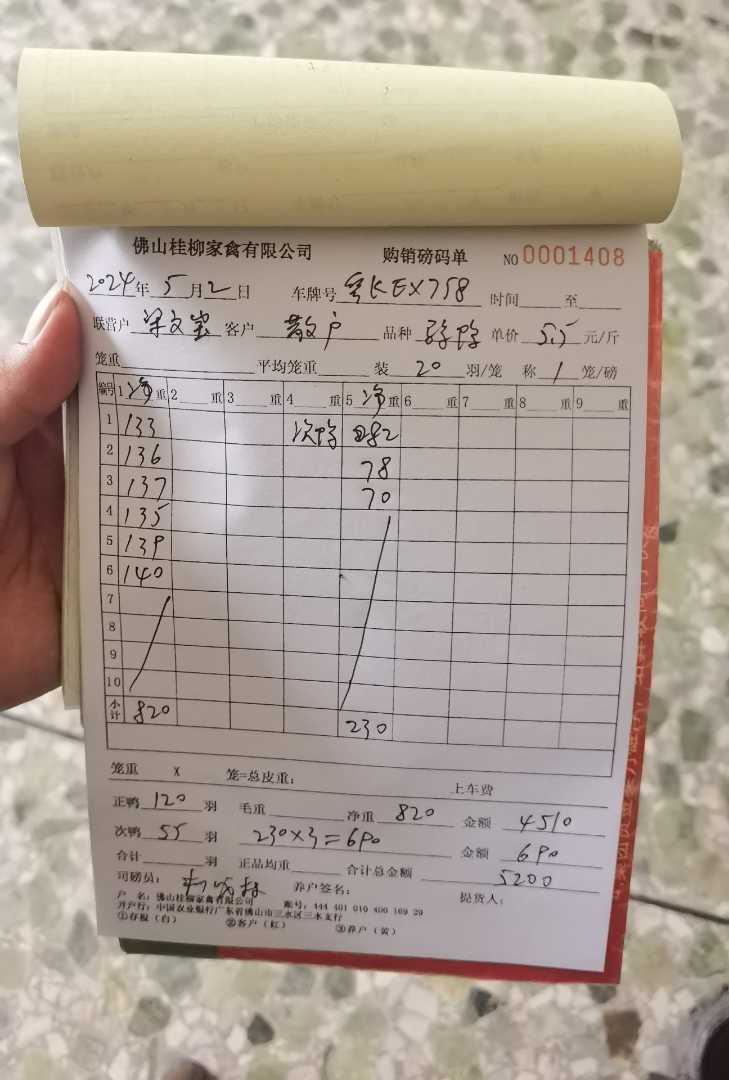 佛山桂柳家禽有限公司 购销磅码单 NO 0001408
2024年 5月2日 车牌号 粤KEX758 时间 至
联营户 梁文 客户 散户 品种 单价 5.5 元/斤
笼重 平均笼重 装 20 羽/笼 称 1 笼/磅
编号 1 净重 2 重 3 重 4 重 5 净重 6 重 7 重 8 重 9 重
1 133 次鸭 82
2 136 78
3 137 70
4 135
5 139
6 140
7
8
9
10
小计 820 230
笼重 X 笼=总皮重: 上车费
正鸭 120 羽 毛重 净重 820 金额 4510
次鸭 55 羽 230×3=690 金额 690
合计 羽 正品均重 合计总金额 5200
司磅员: 养户签名: 提货人:
户 名: 佛山桂柳家禽有限公司 账号: 444 401 010 400 169 29
开户行: 中国农业银行广东省佛山市三水区三水支行
①存根(白) ②客户(红) ③养户(黄)